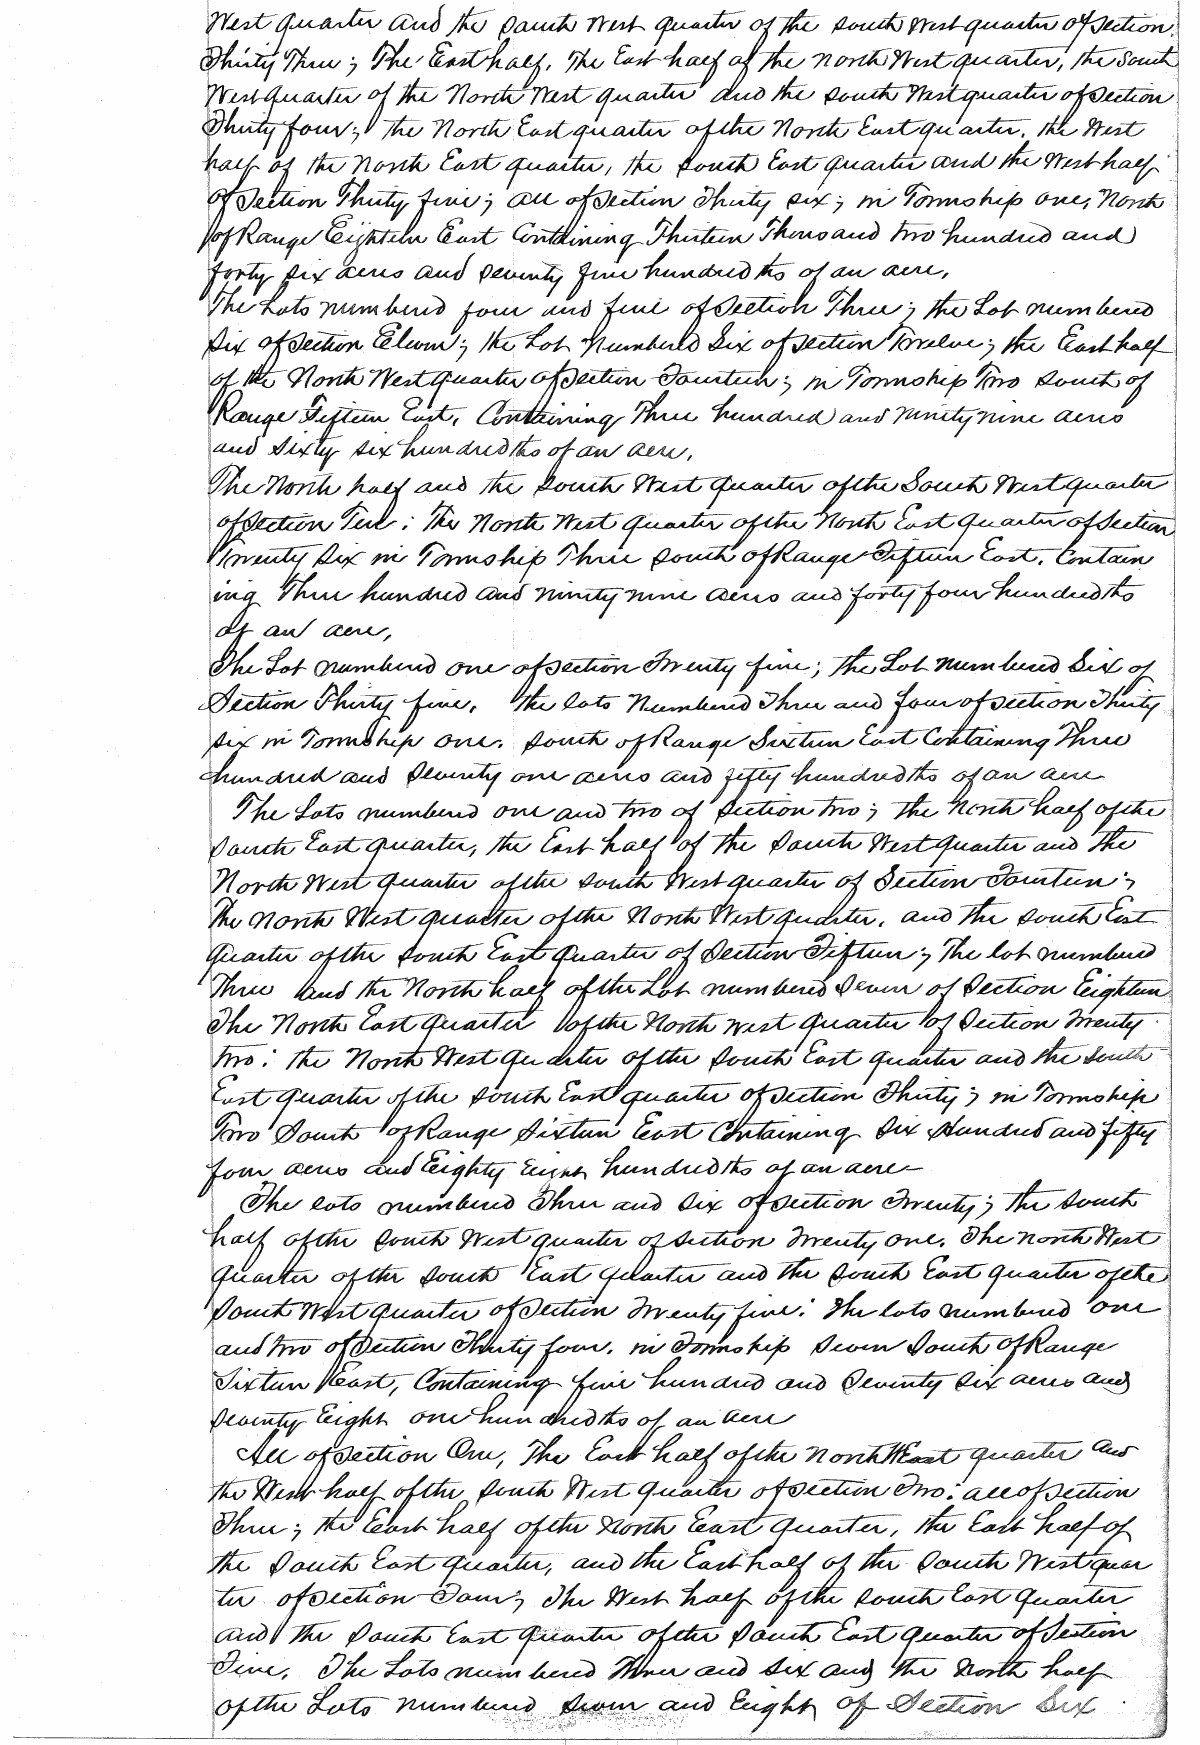 West quarter and the South West quarter of the South West quarter of Section
Thirty Three; The East half, The East half of the North West quarter, the South
West quarter of the North West quarter and the South West quarter of Section
Thirty four; the North East quarter of the North East quarter, the West
half of the North East quarter, the South East quarter and the West half
of Section Thirty five; all of Section Thirty six; in Township one, North
of Range Eighteen East Containing Thirteen Thousand two hundred and
forty six acres and seventy five hundredths of an acre,
The Lots numbered four and five of Section Three; the Lot numbered
Six of Section Eleven; the Lot Numbered Six of Section Twelve; the East half
of the North West quarter of Section Fourteen; in Township Two South of
Range Fifteen East, Containing Three hundred and ninety nine acres
and Sixty six hundredths of an acre,
The North half and the South West quarter of the South West quarter
of Section Ten: The North West quarter of the North East quarter of Section
Twenty Six in Township Three South of Range Fifteen East, Contain
ing Three hundred and ninety nine acres and forty four hundredths
of an acre,
The Lot numbered one of Section Twenty five; the Lot numbered Six of
Section Thirty five, the lots Numbered Three and four of Section Thirty
six in Township one, South of Range Sixteen East Containing Three
hundred and Seventy one acres and fifty hundredths of an acre
The Lots numbered one and two of Section two; the North half of the
South East quarter, the East half of the South West quarter and the
North West quarter of the South West quarter of Section Fourteen;
The North West quarter of the North West quarter, and the South East
quarter of the South East quarter of Section Fifteen; The lot numbered
Three and the North half of the Lot numbered Seven of Section Eighteen
The North East quarter of the North West quarter of Section Twenty
two: the North West quarter of the South East quarter and the South
East quarter of the South East quarter of Section Thirty; in Township
Two South of Range Sixteen East Containing Six Hundred and fifty
four acres and Eighty Eight hundredths of an acre
The lots numbered Three and Six of Section Twenty; the South
half of the South West quarter of Section Twenty one, The North West
quarter of the South East quarter and the South East quarter of the
South West quarter of Section Twenty five: The lots numbered one
and two of Section Thirty four, in Township Seven South of Range
Sixteen East, Containing five hundred and Seventy Six acres and
Seventy Eight one hundredths of an acre
All of Section One, The East half of the North East quarter and
the West half of the South West quarter of Section Two: all of Section
Three; the East half of the North East quarter, the East half of
the South East quarter, and the East half of the South West quar
ter of Section Four; The West half of the South East quarter
and the South East quarter of the South East quarter of Section
Five, The Lots numbered Three and Six and the North half
of the Lots numbered Seven and Eight of Section Six